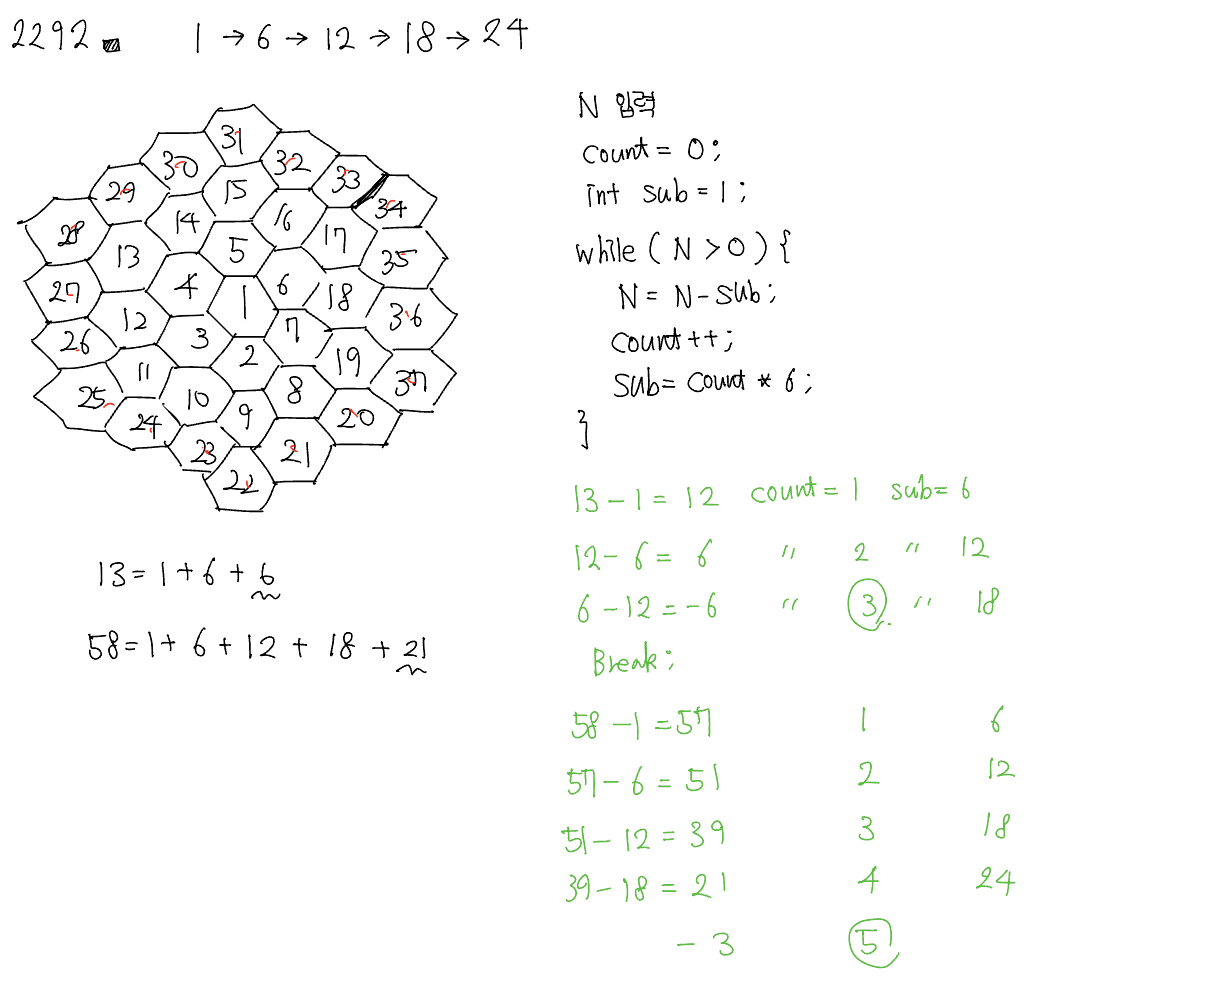 2292. 1 → 6 → 12 → 18 → 24
31
30 32
29 15 33
14 16 34
28 13 5 17 35
4 6
27 1 18
12 7 36
26 3 2 19
11 8 37
25 10 9 20
24 23 21
22
13 = 1 + 6 + 6
58 = 1 + 6 + 12 + 18 + 21
N 입력
count = 0;
int sub = 1;
while ( N > 0 ) {
N = N - sub;
count ++;
sub = count * 6;
}
13 - 1 = 12 count = 1 sub = 6
12 - 6 = 6 〃 2 〃 12
6 - 12 = -6 〃 3 〃 18
Break;
58 - 1 = 57 1 6
57 - 6 = 51 2 12
51 - 12 = 39 3 18
39 - 18 = 21 4 24
- 3 5